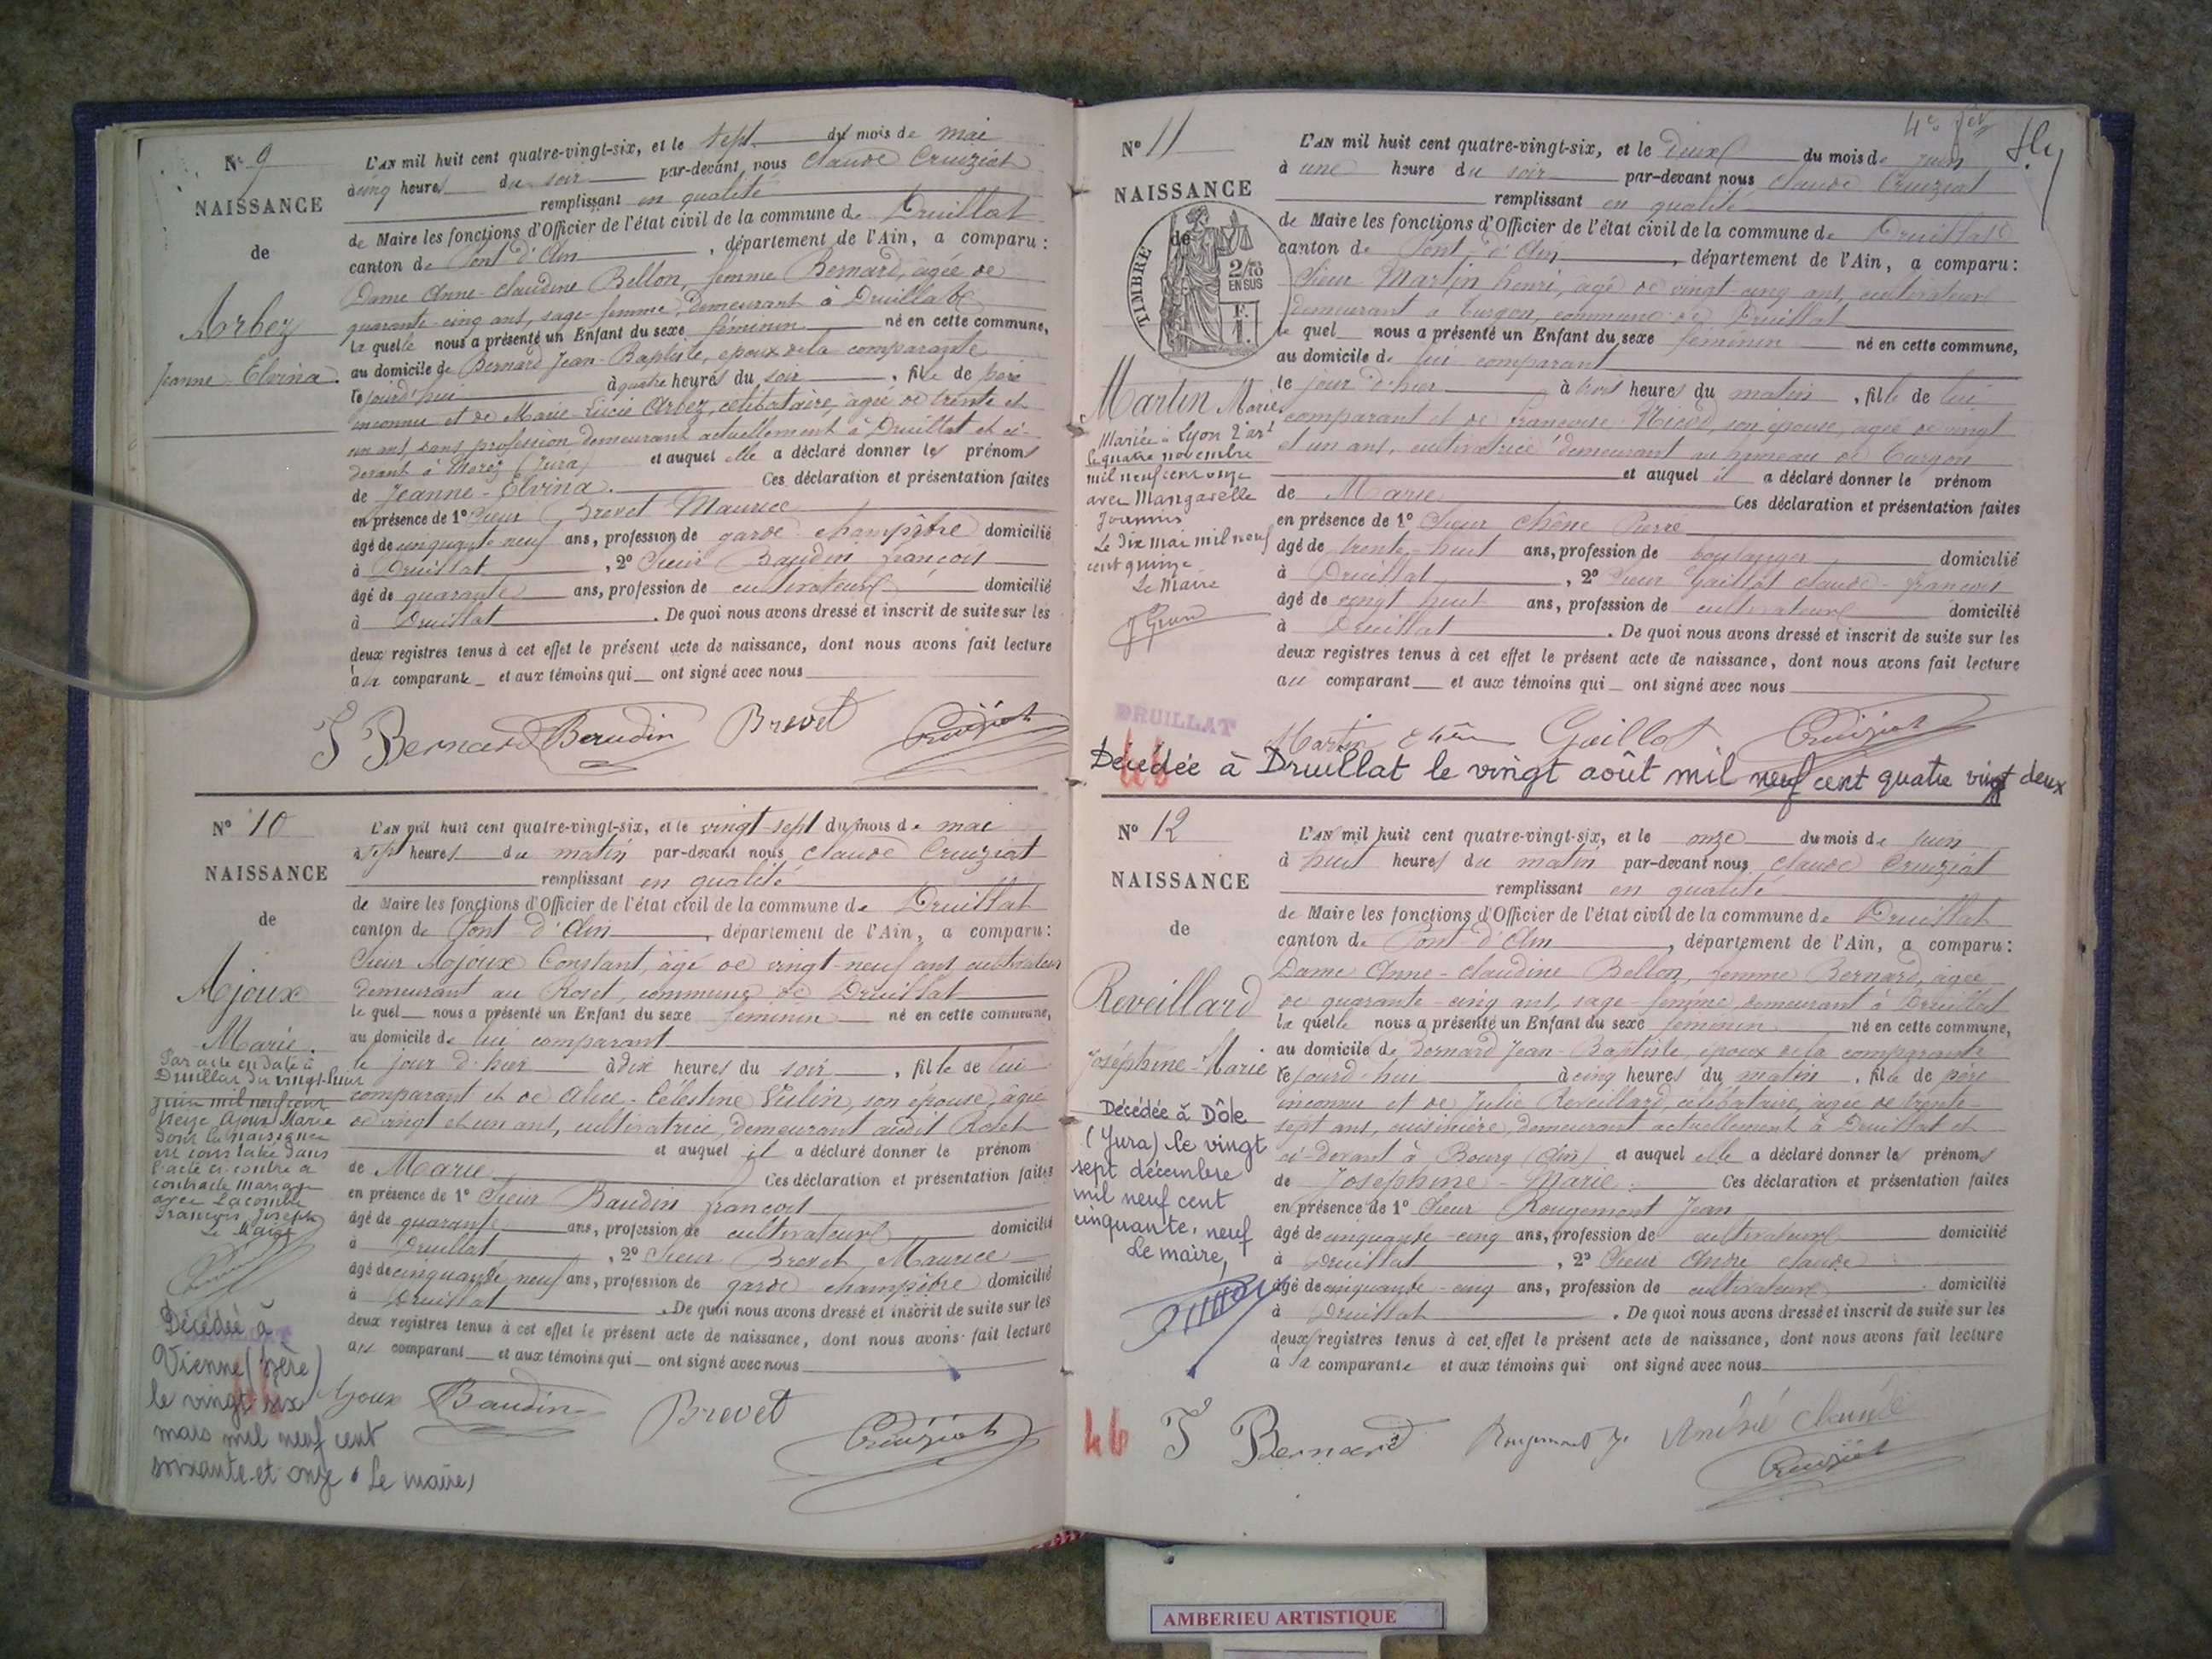 N° 9
NAISSANCE
de
Arbez
Jeanne-Elvina.
L'AN mil huit cent quatre-vingt-six, et le sept du mois de mai
à cinq heures du soir par-devant nous Claude Cruiziat
remplissant en qualité
de Maire les fonctions d'Officier de l'état civil de la commune de Druillat
canton de Pont d'Ain, département de l'Ain, a comparu :
Dame Anne-Claudine Bellon, femme Bernard, âgée de
quarante-cinq ans, sage-femme, demeurant à Druillat
la quelle nous a présenté un Enfant du sexe féminin né en cette commune,
au domicile de Bernard Jean-Baptiste, époux de la comparante
le jourd'hui à quatre heures du soir, fille de père
inconnu et de Marie-Lucie Arbez, célibataire, âgée de trente et
un ans, sans profession demeurant actuellement à Druillat et ci-
devant à Morez (Jura) et auquel elle a déclaré donner les prénoms
de Jeanne-Elvina. Ces déclaration et présentation faites
en présence de 1° Sieur Brevet Maurice
âgé de cinquante neuf ans, profession de garde champêtre domicilié
à Druillat, 2° Sieur Baudin françois
âgé de quarante ans, profession de cultivateur domicilié
à Druillat. De quoi nous avons dressé et inscrit de suite sur les
deux registres tenus à cet effet le présent acte de naissance, dont nous avons fait lecture
à la comparante et aux témoins qui ont signé avec nous
J Bernard Baudin Brevet Cruiziat
N° 10
NAISSANCE
de
Ajoux
Marie.
Par acte en date à
Druillat du vingt-huit
juin mil neuf cent
treize Ajoux Marie
dont la naissance
est constatée dans
l'acte ci-contre a
contracté mariage
avec Lacombe
François Joseph
Le Maire
Décédée à
Vienne (Isère)
le vingt six
mars mil neuf cent
soixante et onze. Le maire,
L'AN mil huit cent quatre-vingt-six, et le vingt-sept du mois de mai
à sept heures du matin par-devant nous Claude Cruiziat
remplissant en qualité
de Maire les fonctions d'Officier de l'état civil de la commune de Druillat
canton de Pont-d'Ain, département de l'Ain, a comparu :
Sieur Ajoux Constant, âgé de vingt-neuf ans cultivateur
demeurant au Roset, commune de Druillat
le quel nous a présenté un Enfant du sexe féminin né en cette commune,
au domicile de lui comparant
le jour d'hier à dix heures du soir, fille de lui
comparant et de Alice-Célestine Vulin, son épouse, âgée
de vingt et un ans, cultivatrice, demeurant audit Roset
et auquel il a déclaré donner le prénom
de Marie. Ces déclaration et présentation faites
en présence de 1° Sieur Baudin françois
âgé de quarante ans, profession de cultivateur domicilié
à Druillat, 2° Sieur Brevet Maurice
âgé de cinquante neuf ans, profession de garde champêtre domicilié
à Druillat. De quoi nous avons dressé et inscrit de suite sur les
deux registres tenus à cet effet le présent acte de naissance, dont nous avons fait lecture
au comparant et aux témoins qui ont signé avec nous
Ajoux Baudin Brevet Cruiziat
N° 11
NAISSANCE
de
TIMBRE
2/10 EN SUS
F. 1.
Martin Marie
Mariée à Lyon 2e art
le quatre novembre
mil neuf cent onze
avec Mangavelle
Joannis
Le dix mai mil neuf
cent quinze
Le Maire
L'AN mil huit cent quatre-vingt-six, et le deux du mois de juin
à une heure du soir par-devant nous Claude Cruiziat
remplissant en qualité
de Maire les fonctions d'Officier de l'état civil de la commune de Druillat
canton de Pont d'Ain, département de l'Ain, a comparu :
Sieur Martin henri, âgé de vingt-cinq ans, cultivateur
demeurant à Turgon, commune de Druillat
le quel nous a présenté un Enfant du sexe féminin né en cette commune,
au domicile de lui comparant
le jour d'hier à trois heures du matin, fille de lui
comparant et de françoise Nicod, son épouse, âgée de vingt
et un ans, cultivatrice demeurant au hameau de Turgon
et auquel il a déclaré donner le prénom
de Marie Ces déclaration et présentation faites
en présence de 1° Sieur Chêne Pierre
âgé de trente-huit ans, profession de boulanger domicilié
à Druillat, 2° Sieur Gaillot Claude-françois
âgé de vingt huit ans, profession de cultivateur domicilié
à Druillat. De quoi nous avons dressé et inscrit de suite sur les
deux registres tenus à cet effet le présent acte de naissance, dont nous avons fait lecture
au comparant et aux témoins qui ont signé avec nous
DRUILLAT
Martin Chêne Gaillot Cruiziat
Décédée à Druillat le vingt août mil neuf cent quatre vingt deux
N° 12
NAISSANCE
de
Reveillard
Joséphine-Marie
Décédée à Dôle
(Jura) le vingt
sept décembre
mil neuf cent
cinquante-neuf
Le maire,
L'AN mil huit cent quatre-vingt-six, et le onze du mois de juin
à huit heures du matin par-devant nous Claude Cruiziat
remplissant en qualité
de Maire les fonctions d'Officier de l'état civil de la commune de Druillat
canton de Pont-d'Ain, département de l'Ain, a comparu :
Dame Anne-Claudine Bellon, femme Bernard, âgée
de quarante-cinq ans, sage-femme demeurant à Druillat
la quelle nous a présenté un Enfant du sexe féminin né en cette commune,
au domicile de Bernard Jean-Baptiste, époux de la comparante
le jourd'hui à cinq heures du matin, fille de père
inconnu et de Julie Reveillard, célibataire, âgée de trente-
sept ans, cuisinière, demeurant actuellement à Druillat et
ci-devant à Bourg (Ain) et auquel elle a déclaré donner les prénoms
de Joséphine-Marie. Ces déclaration et présentation faites
en présence de 1° Sieur Rougemont Jean
âgé de cinquante-cinq ans, profession de cultivateur domicilié
à Druillat, 2° Sieur André Claude
âgé de cinquante-cinq ans, profession de cultivateur domicilié
à Druillat. De quoi nous avons dressé et inscrit de suite sur les
deux registres tenus à cet effet le présent acte de naissance, dont nous avons fait lecture
à la comparante et aux témoins qui ont signé avec nous
46 J Bernard Rougemont J. André Claude
Cruiziat
AMBERIEU ARTISTIQUE